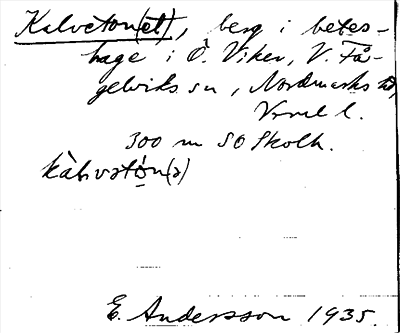 Kalveton(et), berg i betes-
hage i Ö. Viker, V. Få-
gelviks sn, Nordmarks hd,
Vrml l.
300 m SO Skolh.
kàlvətón(ə)
E. Andersson 1935.